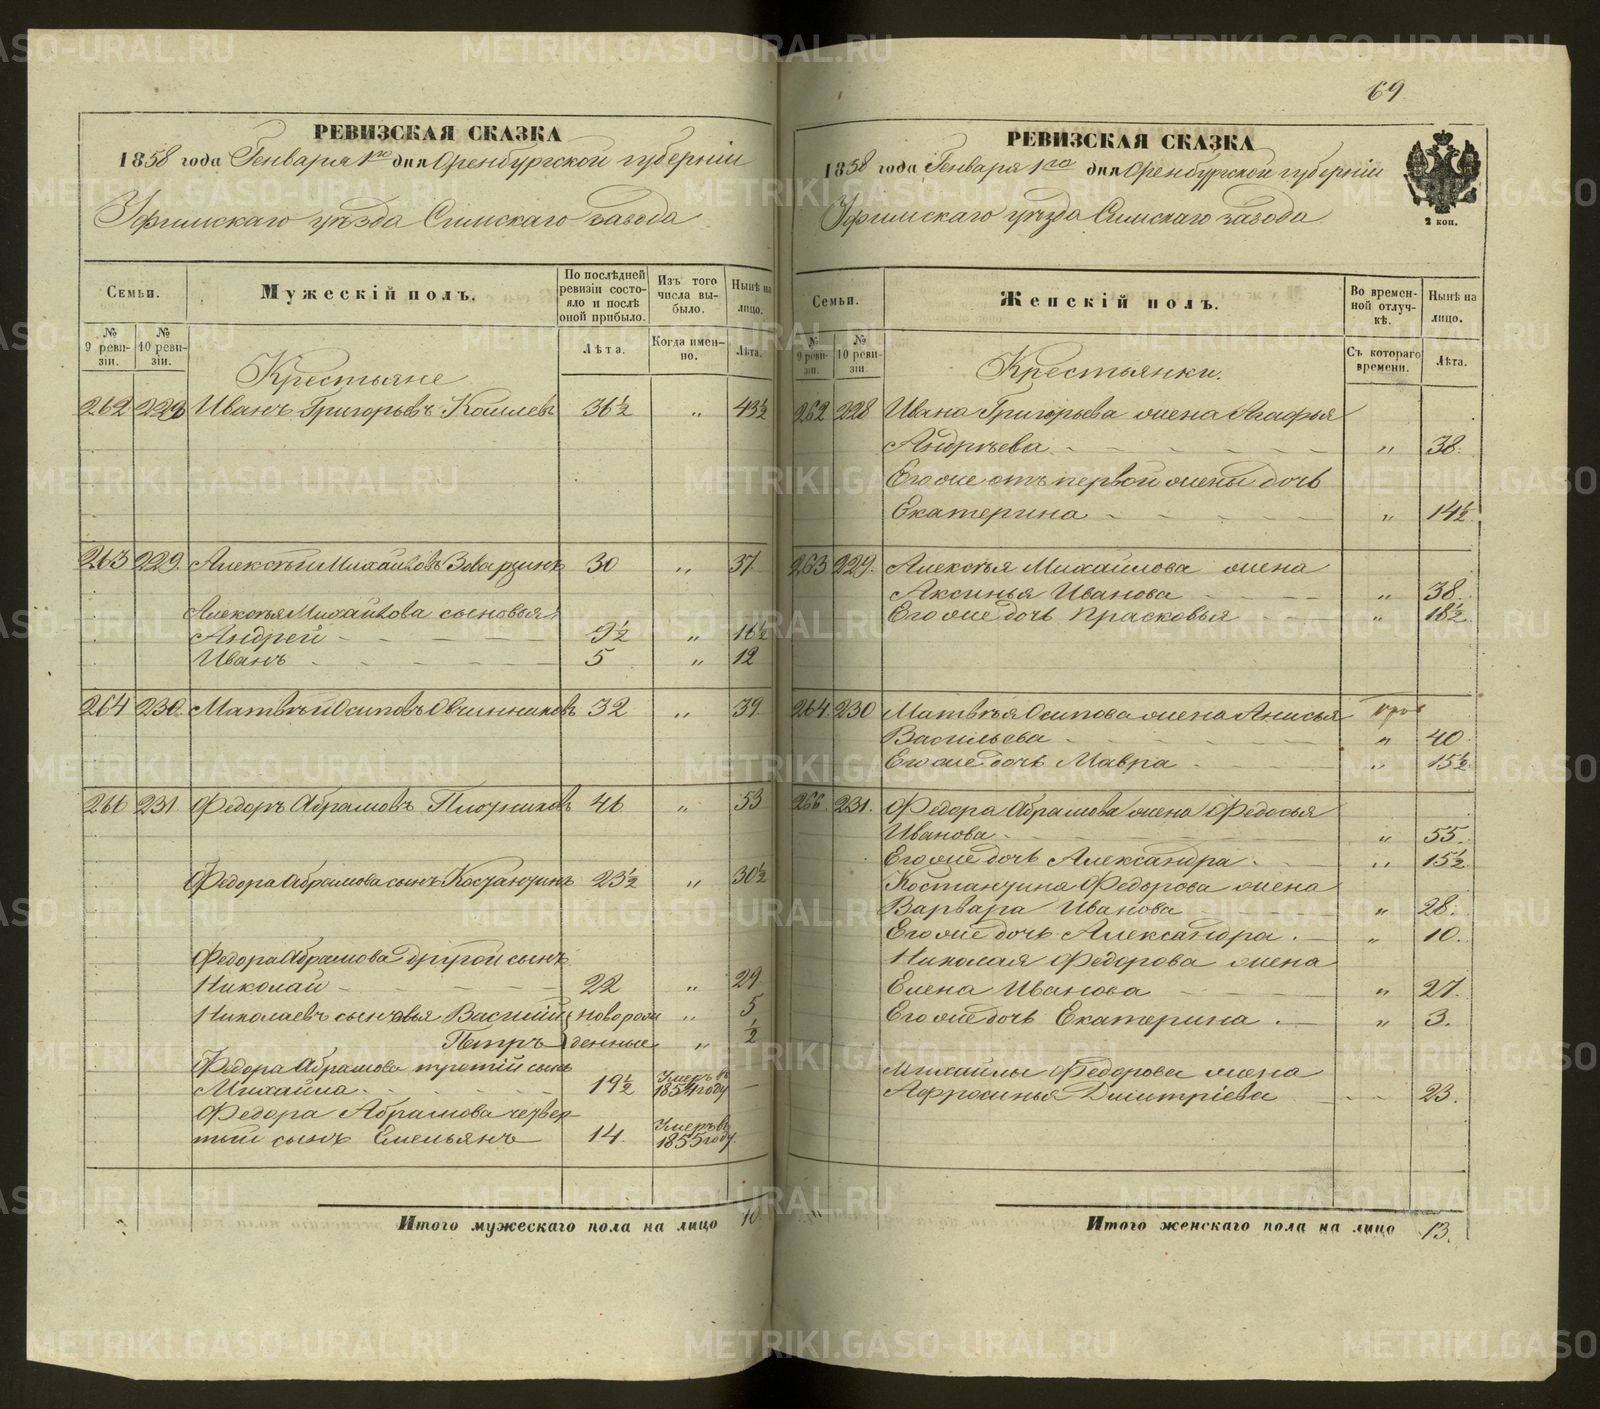 69
РЕВИЗСКАЯ СКАЗКА
1858 года Генваря 1го дня Оренбургской губерніи
Уфимскаго уѣзда Симскаго завода
Семьи.
Мужескій полъ.
По послѣдней ревизіи состояло и послѣ оной прибыло.
Изъ того числа выбыло.
Нынѣ на лицо.
№ 9 ревизіи.
№ 10 ревизіи.
Лѣта.
Когда именно.
Лѣта.
Крестьяне
262 228 Иванъ Григорьевъ 36½ „ 43½
263 229. Алексѣй Михайловъ 30 „ 37
Алексѣя Михайлова сыновья:
Андрей 9½ „ 16½
Иванъ 5 „ 12
264 230. Матвѣй Осиповъ Овчинниковъ 32 „ 39
266 231 Федоръ Абрамовъ Плотниковъ 46 „ 53
Федора Абрамова сынъ Костантинъ 23½ „ 30½
Федора Абрамова другой сынъ
Николай 22 „ 29
Николаевъ сыновья Василій новорож „ 5
Петръ денные „ ½
Федора Абрамова третій сынъ
Михайла 19½ Умеръ въ 1854 году —
Федора Абрамова четвер
тый сынъ Емельянъ 14. Умеръ въ 1855 году
Итого мужескаго пола на лицо 10
РЕВИЗСКАЯ СКАЗКА
1858 года Генваря 1го дня Оренбургской губерніи
Уфимскаго уѣзда Симскаго завода
2 коп.
Семьи.
Женскій полъ.
Во временной отлучкѣ.
Нынѣ на лицо.
№ 9 ревизіи.
№ 10 ревизіи.
Съ котораго времени.
Лѣта.
Крестьянки.
262 228 Ивана Григорьева жена Агафья
Андреева „ 38.
Его же отъ первой жены дочь
Екатерина „ 14½
263 229. Алексѣя Михайлова жена
Аксинья Иванова „ 38.
Его же дочь Прасковья „ 18½
264. 230 Матвѣя Осипова жена Анисья
Васильева „ 40
Его же дочь Мавра „ 15½
266. 231. Федора Абрамова жена Федосья
Иванова „ 55.
Его же дочь Александра „ 15½
Костантина Федорова жена
Варвара Иванова „ 28.
Его же дочь Александра „ 10.
Николая Федорова жена
Елена Иванова „ 27.
Его же дочь Екатерина „ 3.
Михайлы Федорова жена
Афросинья Дмитріева 23.
Итого женскаго пола на лицо 13.
METRIKI.GASO-URAL.RU